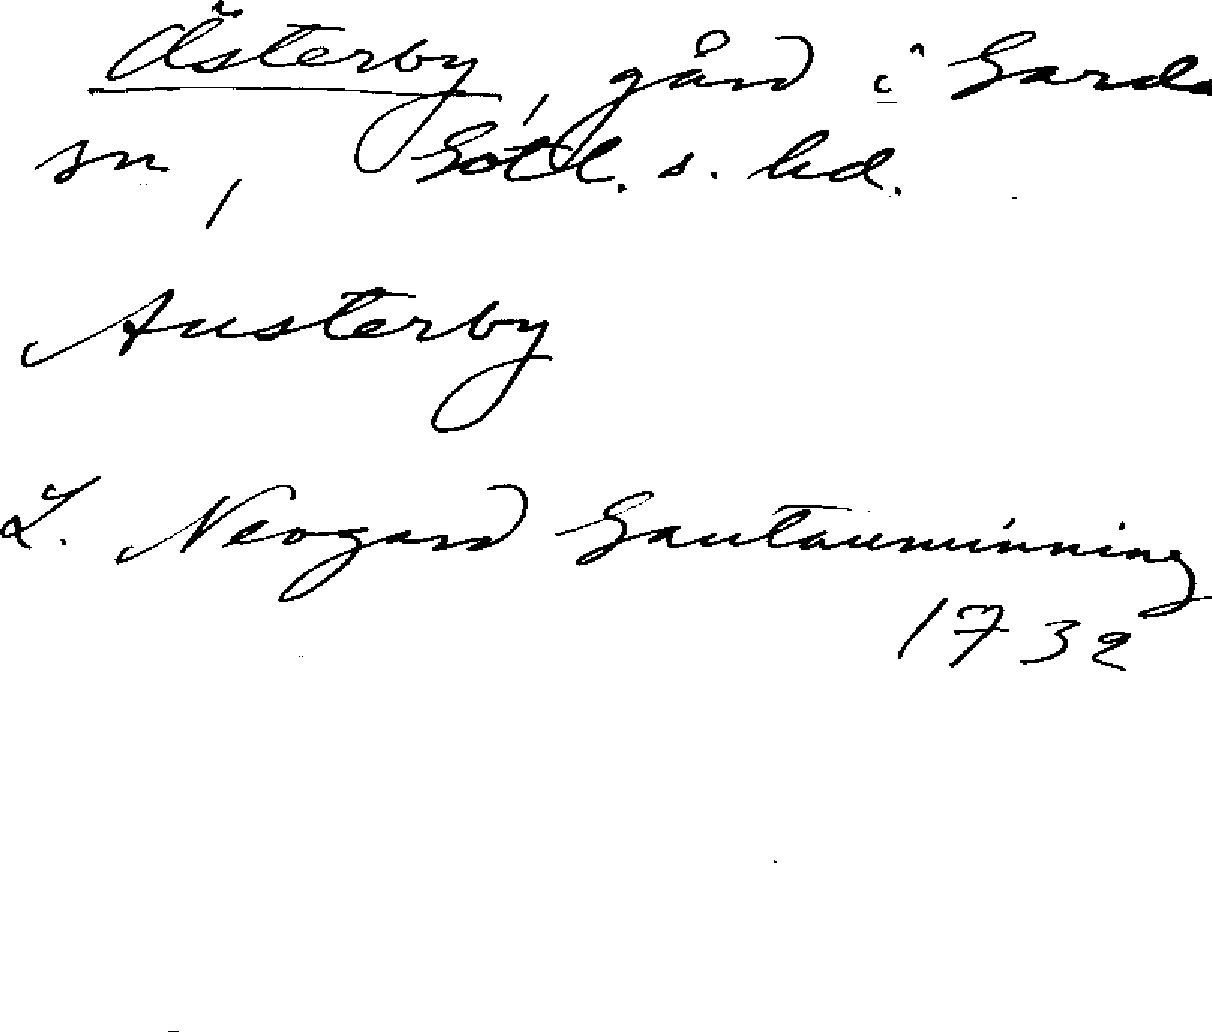 Österby, gård i Garda
sn, Gotl. s. hd.
Austerby
L. Neogard Gautauminning
1732